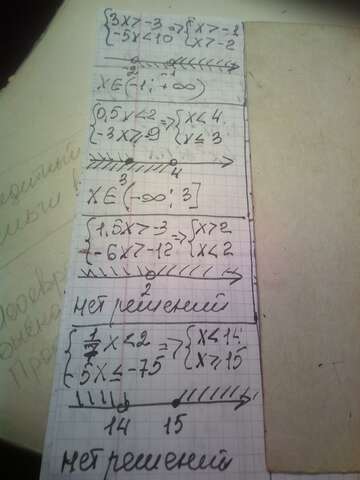 {3x>-3 => {x>-1
{-5x<10 {x>-2
-2 -1
x∈(-1; +∞)
{0,5x<2 => {x<4
{-3x≥-9 {x≤3
3 4
x∈(-∞; 3]
{1,5x>-3 => {x>2
{-6x>-12 {x<2
2
нет решений
{1/7 x<2 => {x<14
{-5x≤-75 {x≥15
14 15
нет решений